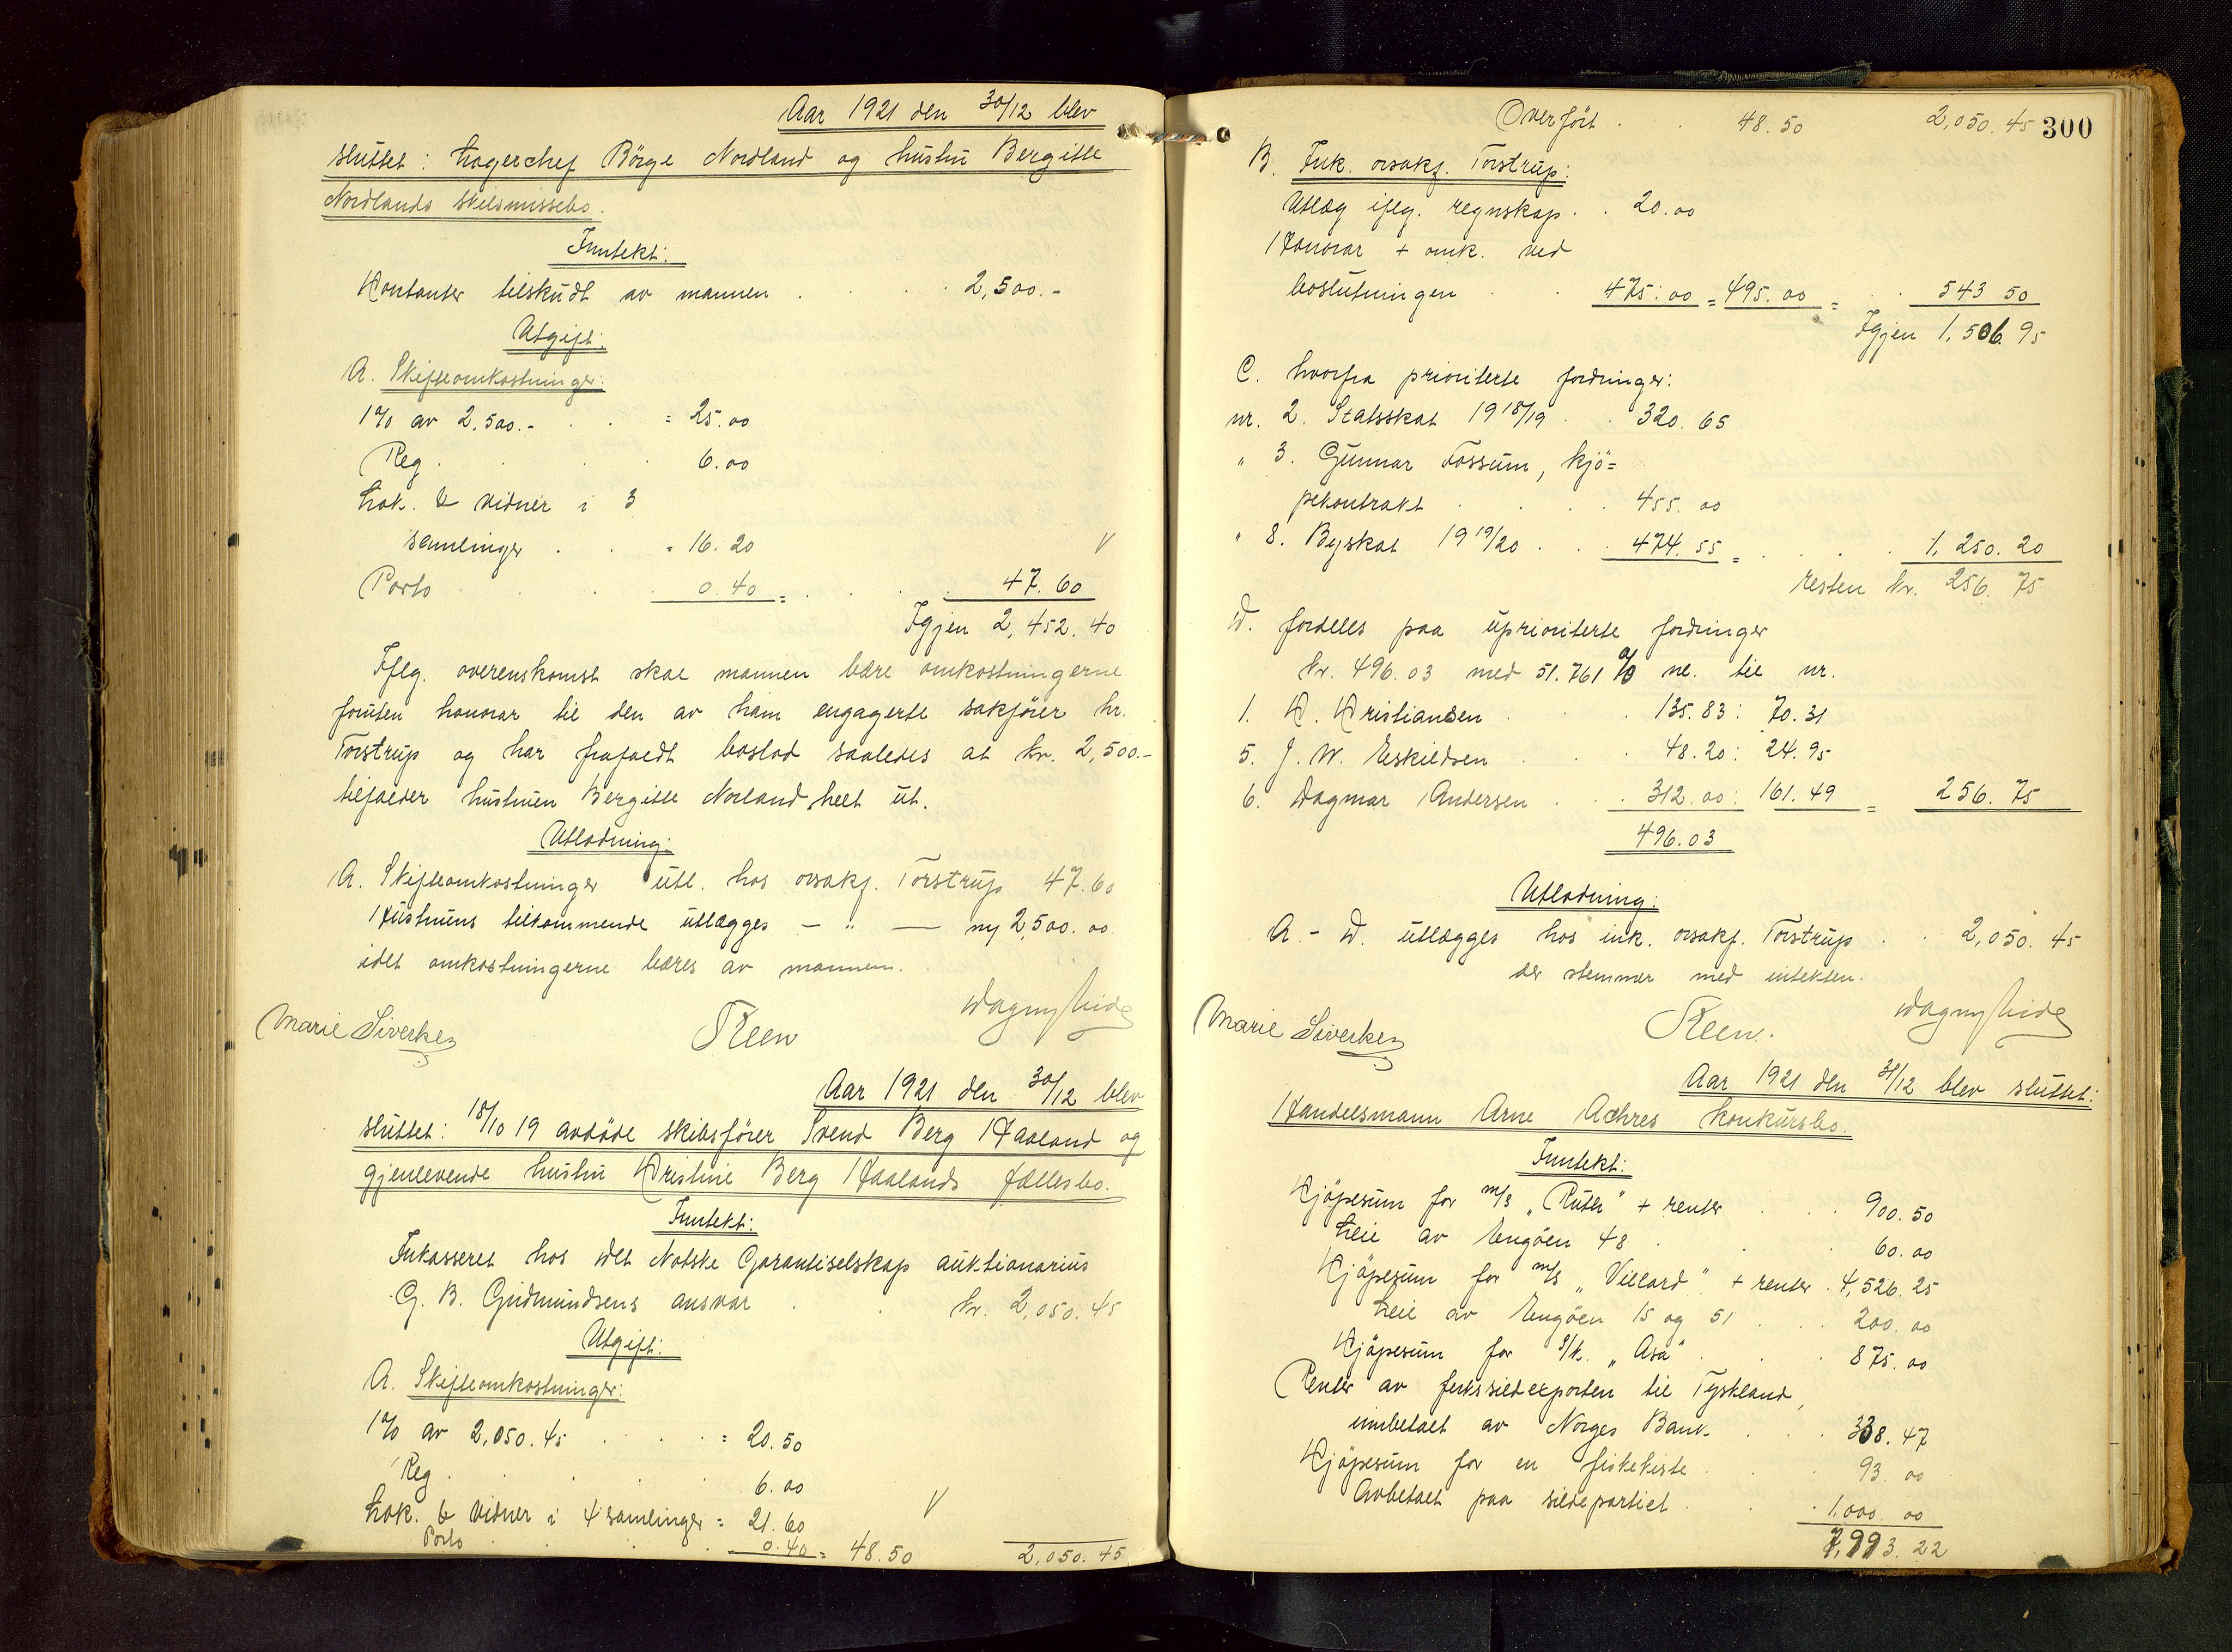 Aar 1921 den 30/12 blev
sluttet: Lagerchef Börge Nordland og hustru Bergitte
Nordlands skilsmissebo.
Inntekt:
Kontanter tilskudt av mannen . . . . 2,500.-
Utgift:
A. Skifteomkostninger:
1% av 2,500.- . . = 25.00
Reg. . . . 6.00
Lok. & vidner i 3
samlinger . . = 16.20
Porto . . . 0.40 = . . . 47.60
Igjen 2,452.40
Iflg. overenskomst skal mannen bære omkostningerne
foruten honorar til den av ham engagerte sakförer hr.
Torstrup og har frafaldt boslod saaledes at kr. 2,500.-
tilfalder hustruen Bergitte Norland helt ut.
Utlodning:
A. Skifteomkostninger utl. hos orsakf. Torstrup 47.60
Hustruens tilkommende utlægges — " — ny 2,500.00
idet omkostningerne bæres av mannen.
Marie Siverkes Steen Dagny
Aar 1921 den 30/12 blev
sluttet: 18/10 19 avdöde skibsförer Svend Berg Haaland og
gjenlevende hustru Kristine Berg Haalands fællesbo.
Inntekt:
Inkasseret hos Det Norske Garantiselskap auktionarius
G. B. Gudmundsens ansvar . . kr. 2,050.45
Utgift:
A. Skifteomkostninger:
1% av 2,050.45 . . . = 20.50
Reg. . . . 6.00
Lok. & vidner i 4 samlinger = 21.60
Porto . . . 0.40 = 48.50 2,050.45
Overfört . . 48.50 2,050.45 300
B. Ink. orsakf. Torstrup:
Utlæg iflg. regnskap . . 20.00
Honorar + omk. ved
boslutningen . . 475.00 = 495.00 = . . 543 50
Igjen 1,506.95
C. hvorfra prioriterte fordringer:
nr. 2. Statsskat 1918/19 . . 320.65
" 3. Gunnar Fossum, kjö=
pekontrakt . . . 455.00
" 8. Byskat 1919/20 . . . 474.55 = . . . 1,250.20
resten kr. 256.75
D. fordeles paa uprioriterte fordringer
kr. 496.03 med 51.761 % nl. til nr.
1. K. Kristiansen . . . 135.83: 70.31
5. J. W. Eskildsen . . . 48.20: 24.95
6. Dagmar Andersen . . . 312.00: 161.49 = 256.75
496.03
Utlodning:
A.- D. utlægges hos ink. orsakf. Torstrup . . 2,050.45
der stemmer med intekten.
Marie Siverkes Steen. Dagny
Aar 1921 den 31/12 blev sluttet:
Handelsmann Arne Achres konkursbo.
Inntekt:
Kjöpesum for m/s "Ruth" + renter . . . 900.50
Leie av Engöen 48 . . . 60.00
Kjöpesum for m/s "Villard" + renter . 4,526.25
Leie av Engöen 15 og 51 . . . 200.00
Kjöpesum for s/k. "Asa" . . . 875.00
Renter av ferksildexporten til Tyskland,
innbetalt av Norges Bank . . . 338.47
Kjöpesum for en fiskekiste . . . 93.00
Avbetalt paa sildepartiet . . . 1,000.00
7,993.22